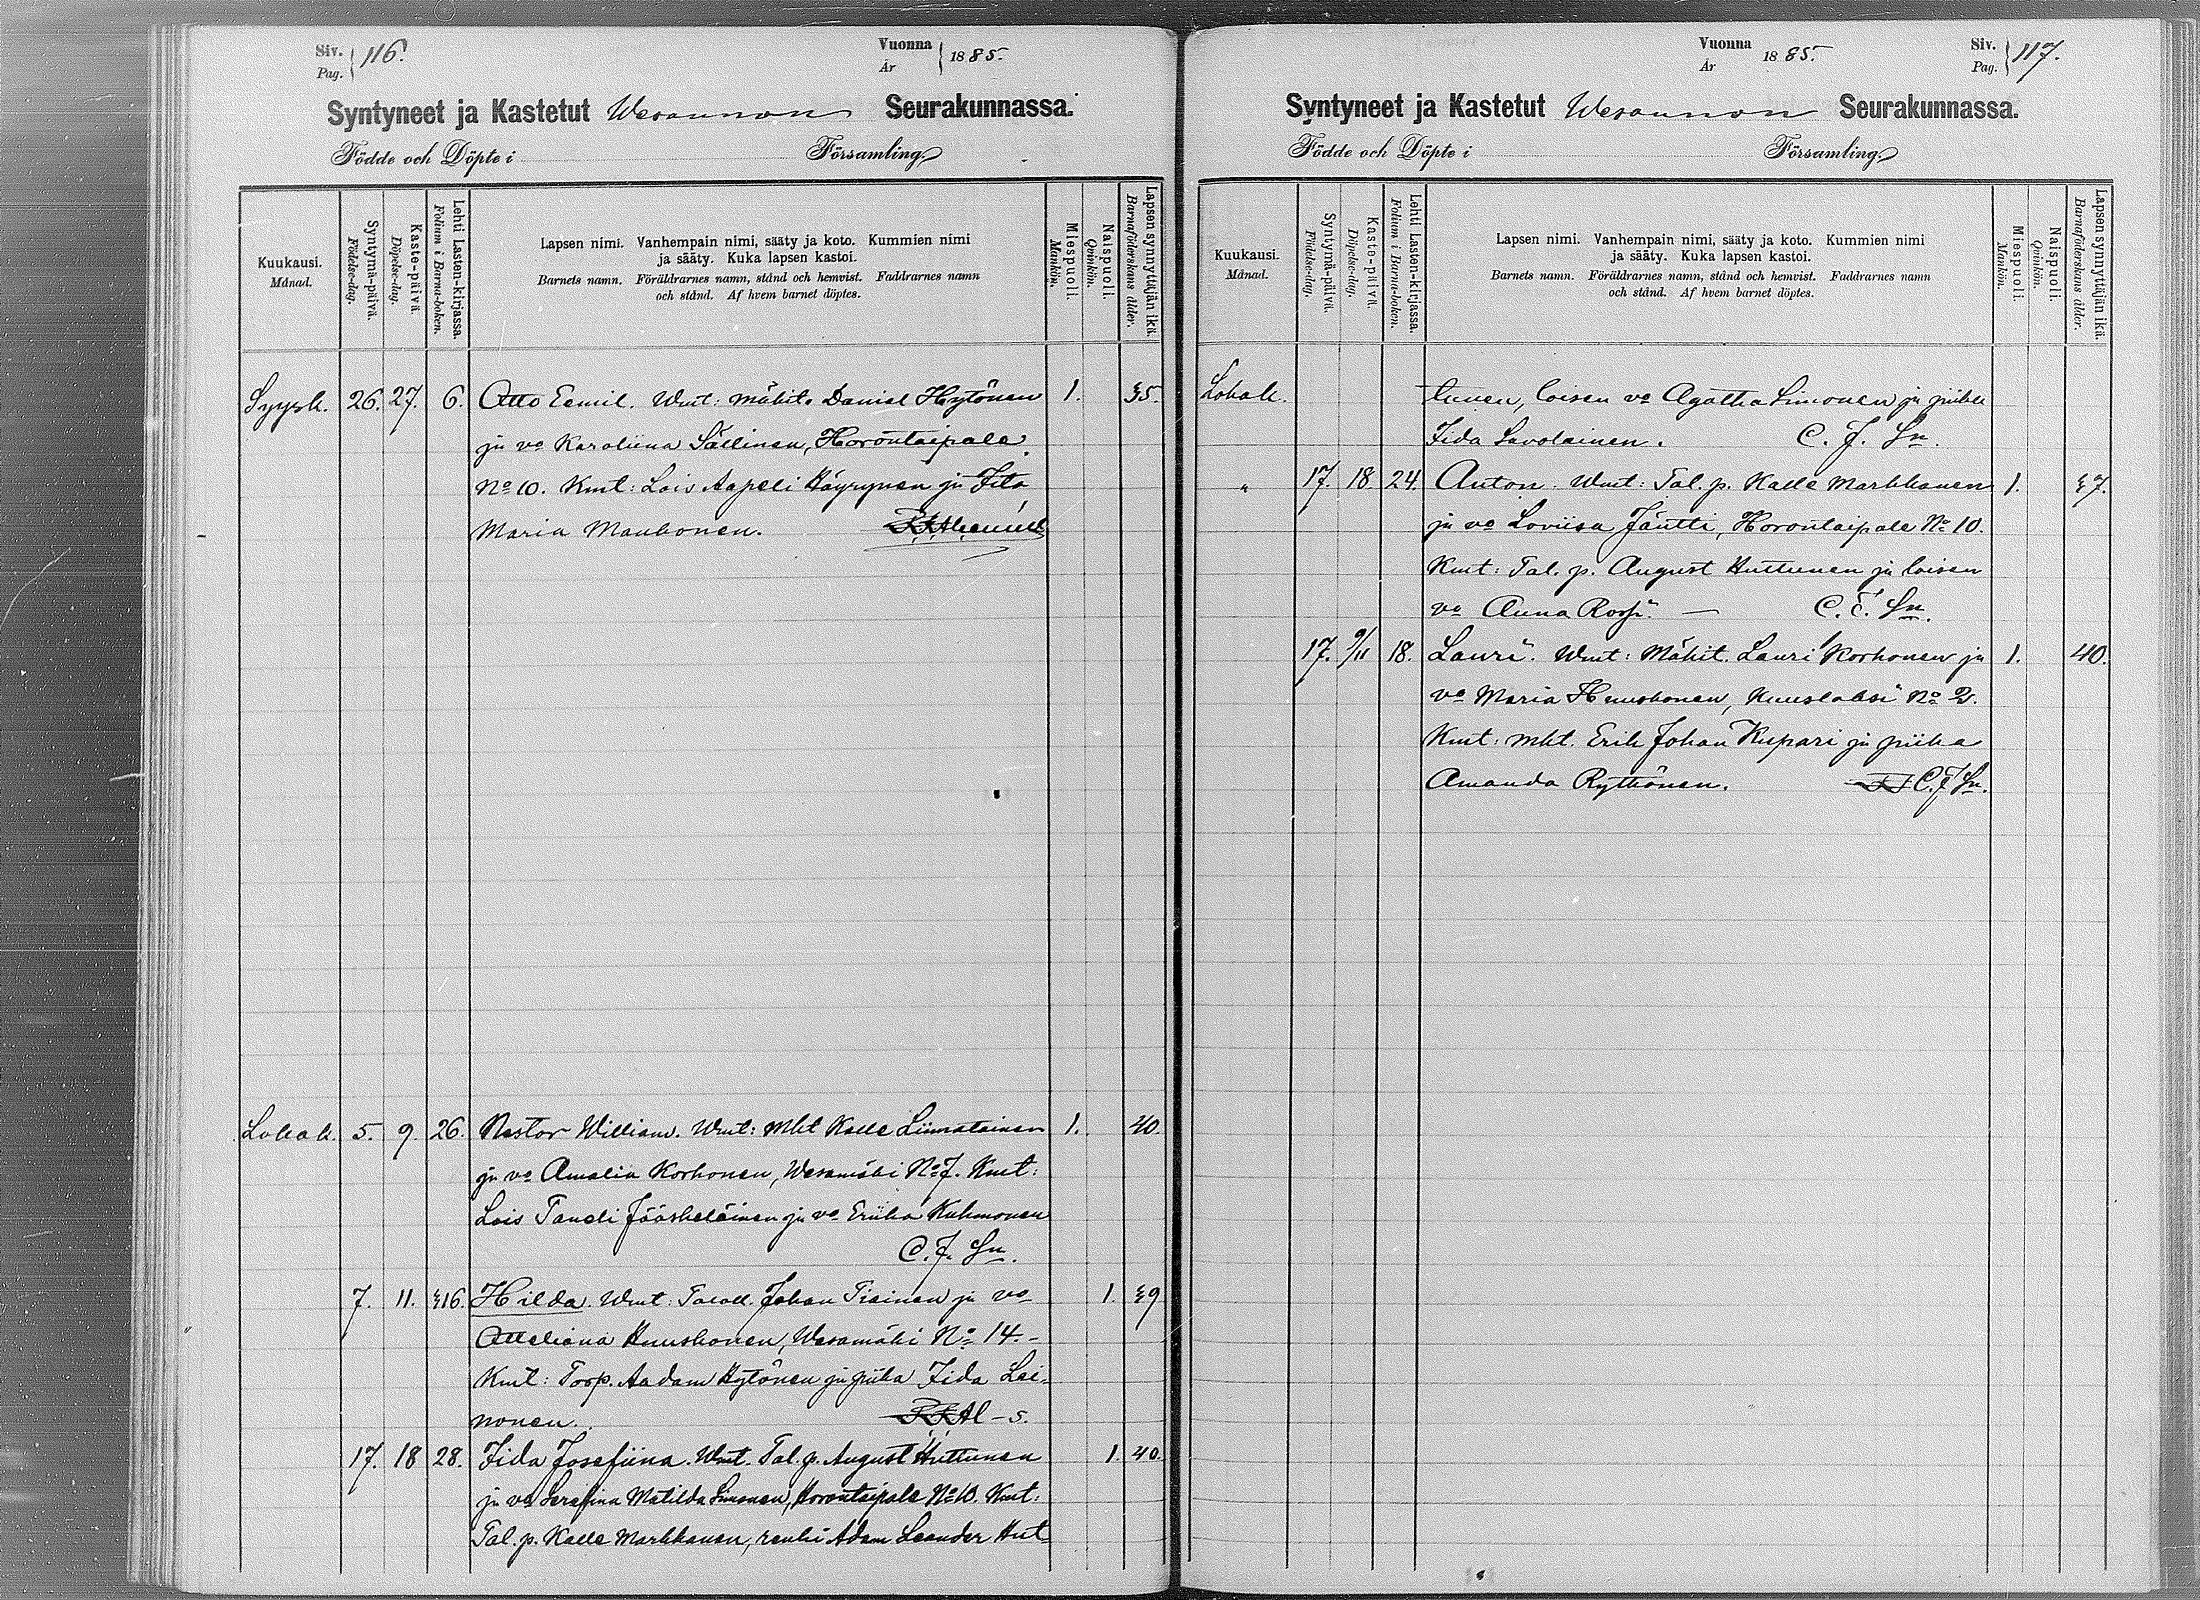 Siv. Pag. 116.
Vuonna År 1885.
Syntyneet ja Kastetut Wesannon Seurakunnassa.
Födde och Döpte i Församling.
Kuukausi. Månad.
Syntymä-päivä. Födelse-dag.
Kaste-päivä. Döpelse-dag.
Lehti Lasten-kirjassa. Folium i Barna-boken.
Lapsen nimi. Vanhempain nimi, sääty ja koto. Kummien nimi
ja sääty. Kuka lapsen kastoi.
Barnets namn. Föräldrarnes namn, stånd och hemvist. Faddrarnes namn
och stånd. Af hvem barnet döptes.
Miespuoli. Mankön.
Naispuoli. Qvinkön.
Lapsen synnyttäjän ikä. Barnaföderskans ålder.
Syysk. 26. 27. 6. Otto Eemil. Wmt: mäkit. Daniel Hytönen 1. 35.
ja vo Karoliina Sällinen, Horontaipale
No 10. Kmt: Lois Aapeli Häyrynen ja Iita
Maria Manhonen.
Lokak. 5. 9. 26. Nestor William. Wmt: Mkt Kalle Liimatainen 1. 40.
ja vo Amalia Korhonen, Wesamäki No 7. Kmt:
Lois Taneli Jääskeläinen ja vo Eriika Kuhmonen
C. J. Sn.
7. 11. 216. Hilda. Wmt: Taloll. Johan Tiainen ja vo 1. 29
Atteliana Huuskonen, Wesamäki No 14. -
Kmt: Torp. Aadam Hytönen ja piika Iida Lei-
nonen.
17. 18 28. Iida Josefiina. Wmt. Tal. p. August Huttunen 1. 40.
ja vo Serafina Matilda Simonen, Horontaipale No 10. Kmt:
Tal. p. Kalle Markkanen, renki Adam Leander Hut-
Vuonna År 1885.
Siv. Pag. 117.
Syntyneet ja Kastetut Wesannon Seurakunnassa.
Födde och Döpte i Församling.
Kuukausi. Månad.
Syntymä-päivä. Födelse-dag.
Kaste-päivä. Döpelse-dag.
Lehti Lasten-kirjassa. Folium i Barna-boken.
Lapsen nimi. Vanhempain nimi, sääty ja koto. Kummien nimi
ja sääty. Kuka lapsen kastoi.
Barnets namn. Föräldrarnes namn, stånd och hemvist. Faddrarnes namn
och stånd. Af hvem barnet döptes.
Miespuoli. Mankön.
Naispuoli. Qvinkön.
Lapsen synnyttäjän ikä. Barnaföderskans ålder.
Lokak. tunen, loisen vo Agatha Simonen ja piika
Iida Savolainen. C. J. Sn.
" 17. 18. 24. Anton. Wmt: Tal. p. Kalle Markkanen 1. 27.
ja vo Loviisa Jäntti, Horontaipale No 10.
Kmt: Tal. p. August Huttunen ja loisen
vo Anna Rossi. — C. J. Sn.
17. 9/11 18. Lauri. Wmt: Mäkit. Lauri Korhonen ja 1. 40.
vo Maria Huuskonen, Kuuslaksi No 2.
Kmt: mkt. Erik Johan Kupari ja piika
Amanda Rytkönen. C. J Sn.